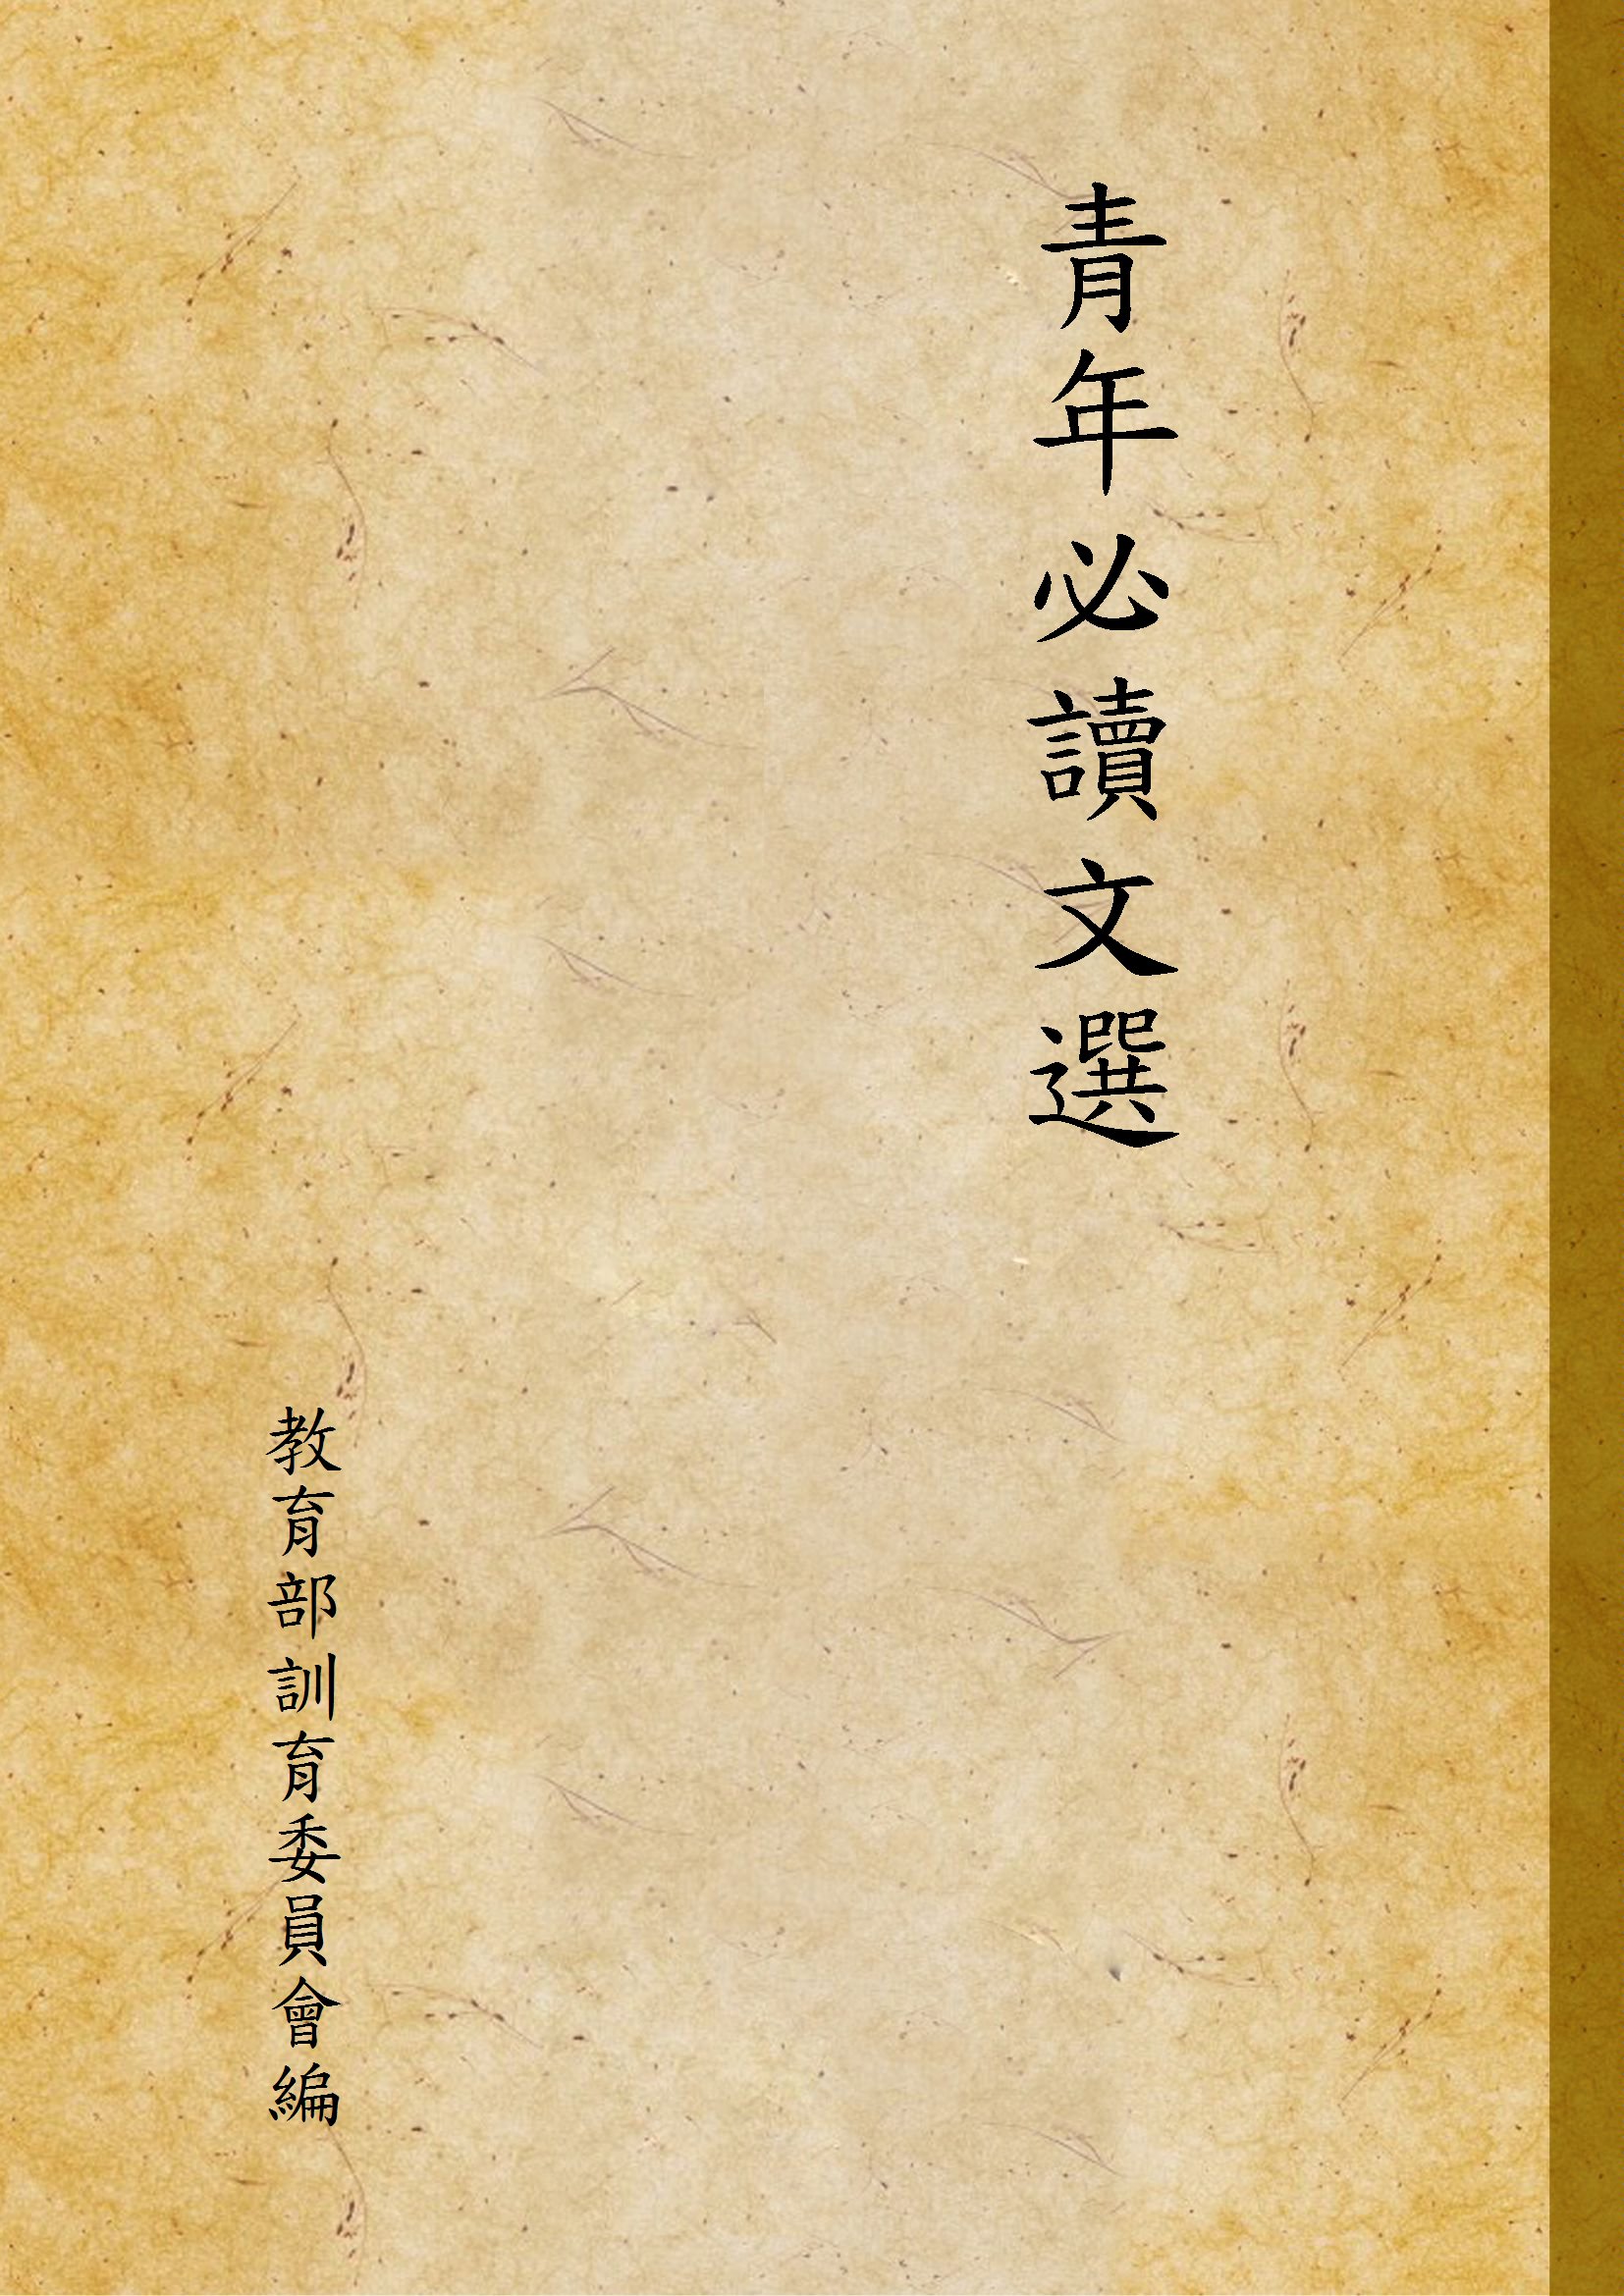 青年必讀文選
教育部訓育委員會編